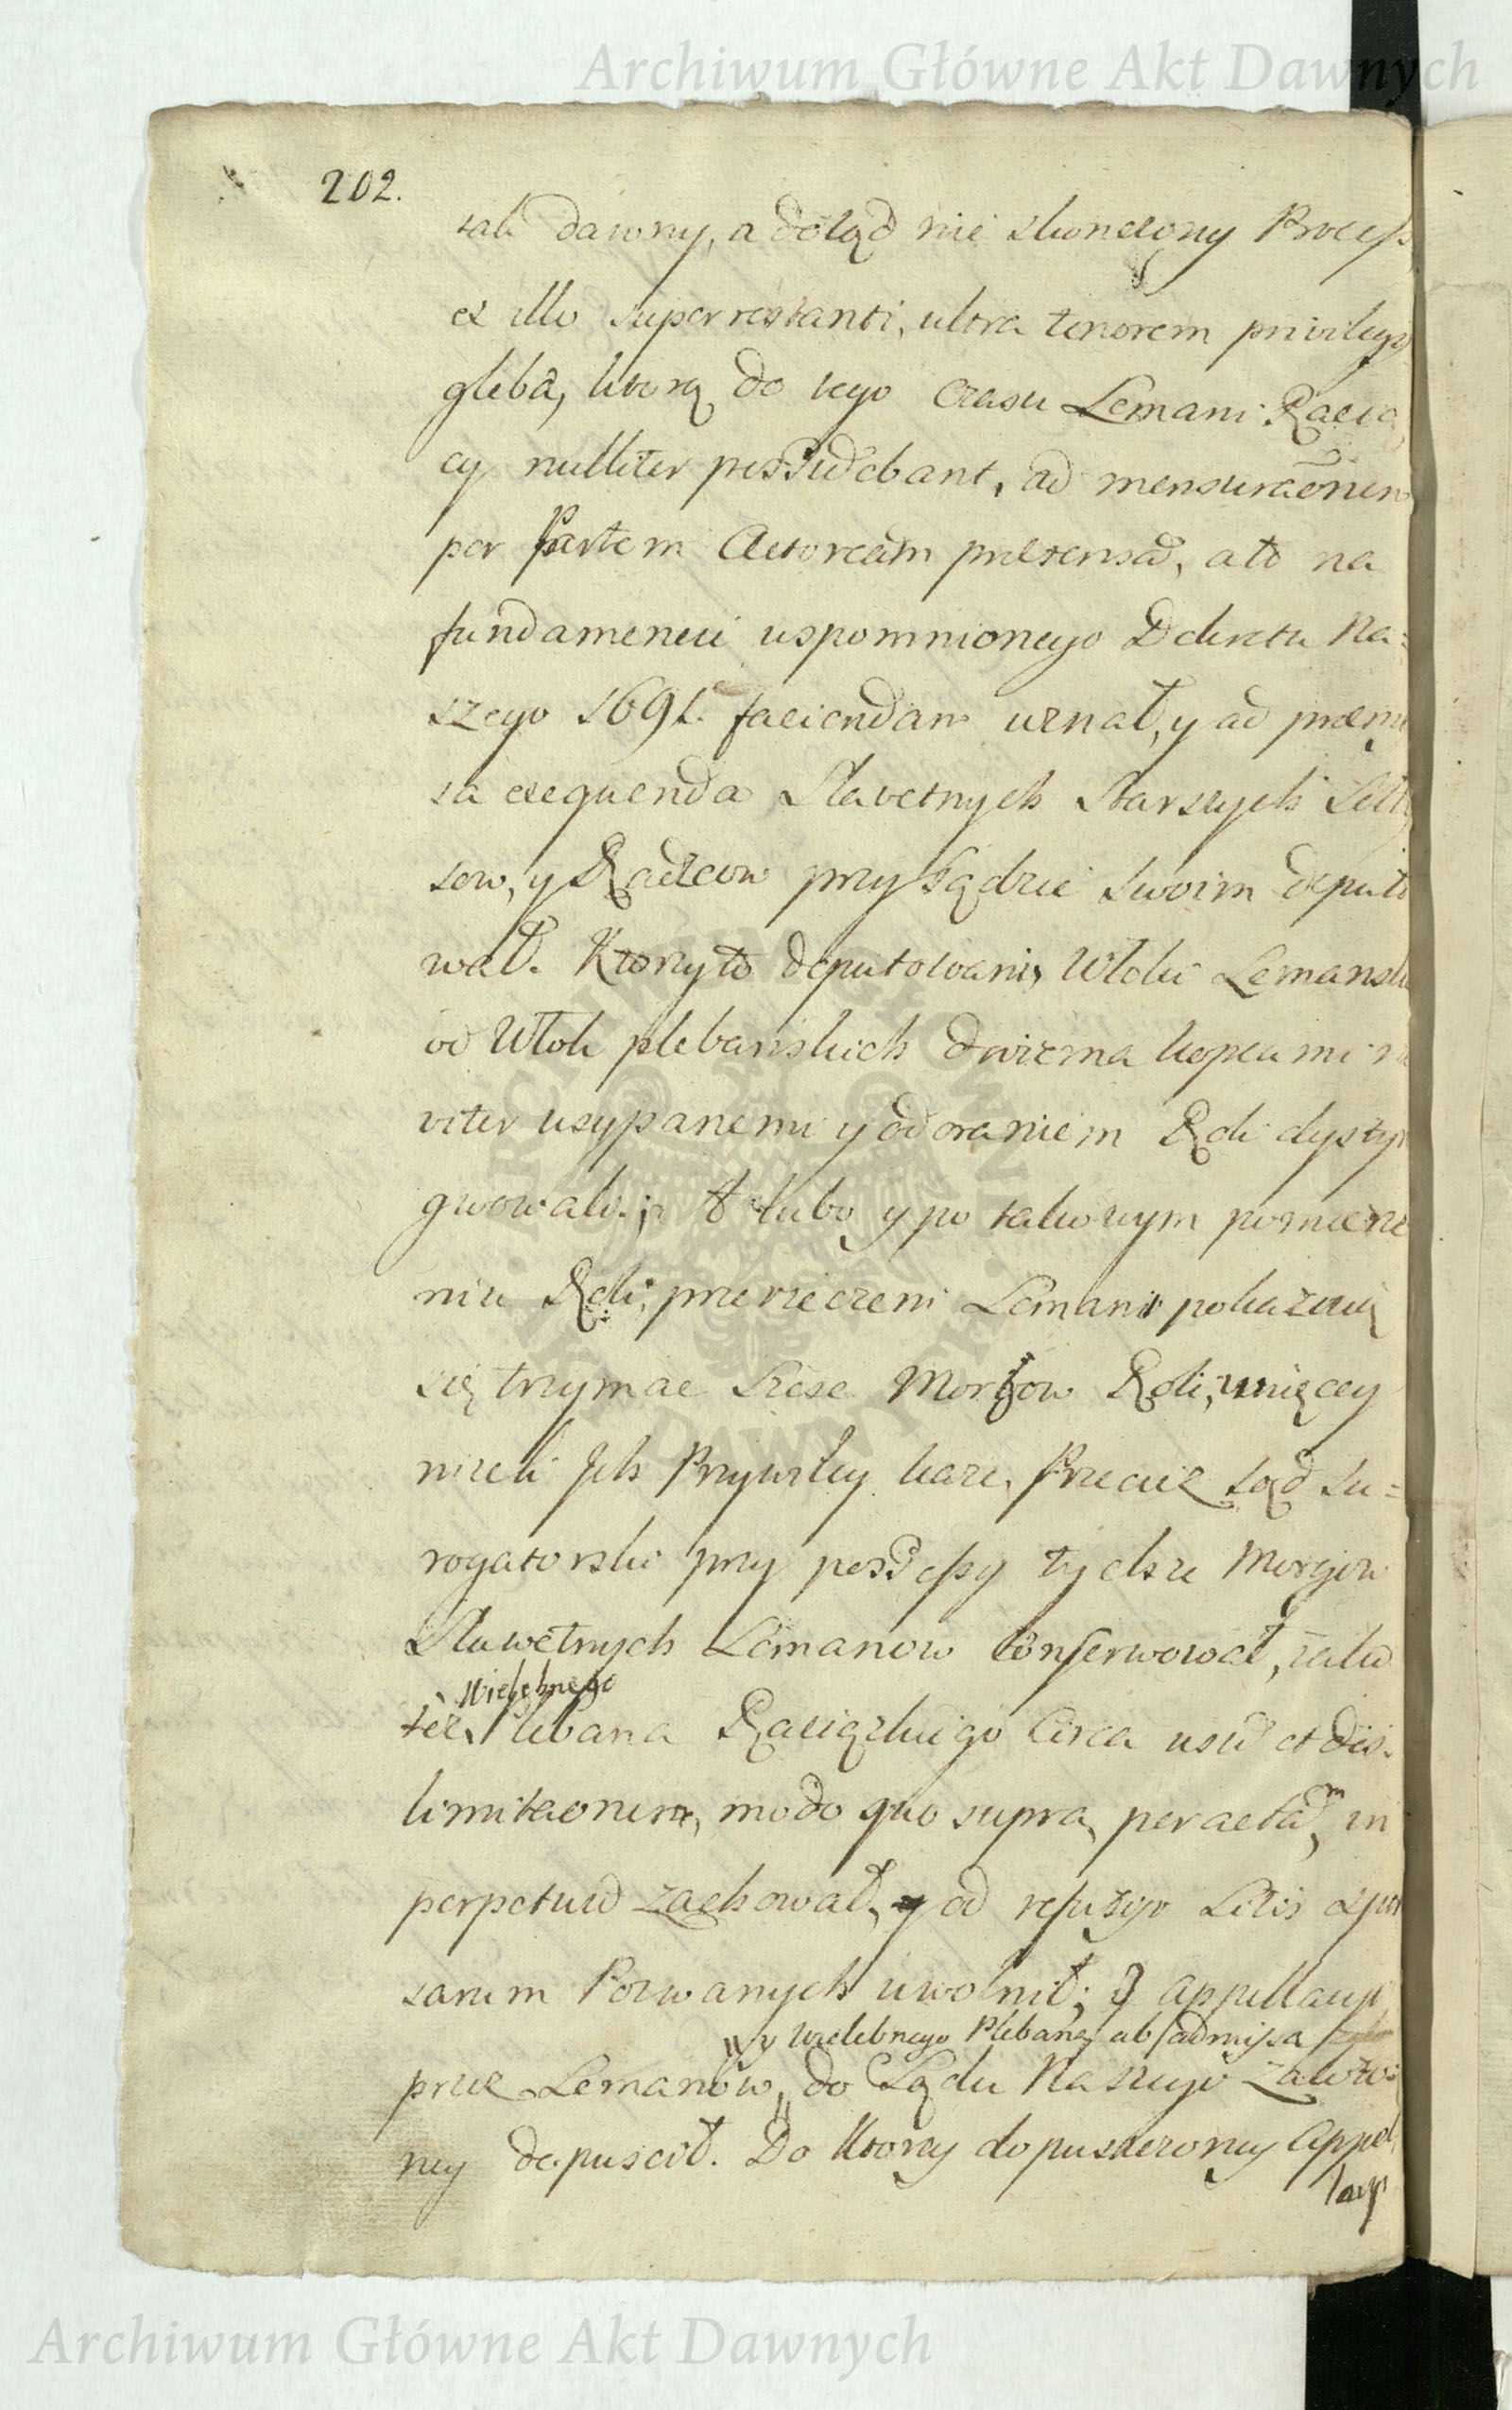 Archiwum Główne Akt Dawnych
202.
tak dawny, a dotąd nie skonczony Process
ex illo superrestanti, ultra tenorem privilegy
gleba, ktorą do tego czasu Lemani Raciąz
cy nulliter possidebant, ad mensuraōnem
per Partem Actoream prætensā, a to na
fundamencie wspomnionego Dekretu Na=
szego 1691. faciendam uznał, y ad præmis
sa exequenda Sławetnych Starszych Sołt
sow, y Radźcow przy Sądzie swoim deputo
wał. Ktorzy to deputowani, Włoki Lemanskie
od Włok plebańskich dwiema kopcami no
viter usypanemi y odoraniem Roli dystyn
gwowali; A lubo y po takowym pomierze
niu Roli, przerzeczeni Lemani pokazuią
się trzymac szesc Morgow Roli, więcey
nizeli Jch Przywiley każe, Przecież sąd su=
rogatorski przy possessyi tychze Morgow
Sławetnych Lemanow konserwował, iako
Wielebnego
też Plebana Raciązkiego circa usū et dis-
limitaonem, modo quo supra, peractam, in
perpetuū zachował, y od refusyo Litis expen
sarum Pozwanych uwolnił; J appellacyi
y Wielebnego Plebana ab admissa
przez Lemanow, do Sądu Naszego Zadwor
ney dopuscił. Do ktorey dopuszczoney Appel,
lacyi
ARCHIWUM GŁÓWNE AKT DAWNYCH
Archiwum Główne Akt Dawnych